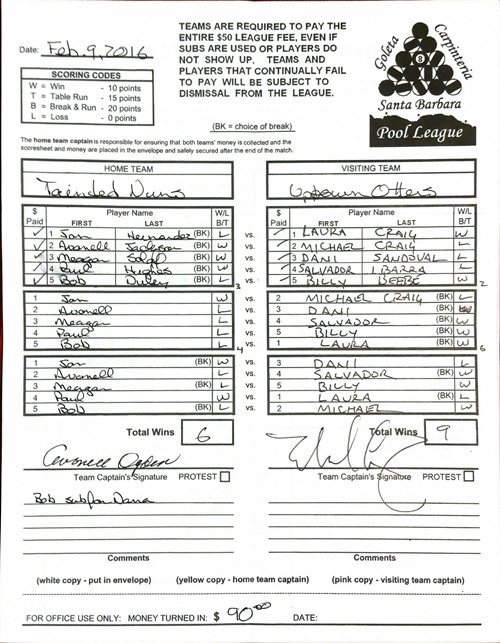 Date: Feb. 9, 2016
TEAMS ARE REQUIRED TO PAY THE
ENTIRE $50 LEAGUE FEE, EVEN IF
SUBS ARE USED OR PLAYERS DO
NOT SHOW UP. TEAMS AND
PLAYERS THAT CONTINUALLY FAIL
TO PAY WILL BE SUBJECT TO
DISMISSAL FROM THE LEAGUE.
SCORING CODES
W = Win - 10 points
T = Table Run - 15 points
B = Break & Run - 20 points
L = Loss - 0 points
Goleta Carpinteria
Santa Barbara
Pool League
(BK = choice of break)
The home team captain is responsible for ensuring that both teams' money is collected and the
scoresheet and money are placed in the envelope and safely secured after the end of the match.
HOME TEAM VISITING TEAM
Tainded Nuns Uptown Otters
$ Paid Player Name FIRST LAST W/L B/T $ Paid Player Name FIRST LAST W/L B/T
1 Jan Hernandez (BK) L vs. 1 LAURA CRAIG W
2 Avonell Jackson (BK) W vs. 2 MICHAEL CRAIG L
3 Meagan (BK) W vs. 3 DANI SANDOVAL L
4 Paul Hughes (BK) W vs. 4 SALVADOR IBARRA L
5 Bob (BK) L vs. 5 BILLY BEEBE W
3 2
1 Jan W vs. 2 MICHAEL CRAIG (BK) L
2 Avonell L vs. 3 DANI (BK) W
3 Meagan L vs. 4 SALVADOR (BK) W
4 Paul L vs. 5 BILLY (BK) W
5 Bob L vs. 1 LAURA (BK) W
4 6
1 Jan (BK) W vs. 3 DANI L
2 Avonell (BK) L vs. 4 SALVADOR W
3 Meagan (BK) L vs. 5 BILLY W
4 Paul W vs. 1 LAURA (BK) L
5 Bob (BK) L vs. 2 MICHAEL W
Total Wins 6 Total Wins 9
Avonell Ogden
Team Captain's Signature PROTEST Team Captain's Signature PROTEST
Bob sub for Dana
Comments Comments
(white copy - put in envelope) (yellow copy - home team captain) (pink copy - visiting team captain)
FOR OFFICE USE ONLY: MONEY TURNED IN: $ 90.00 DATE: